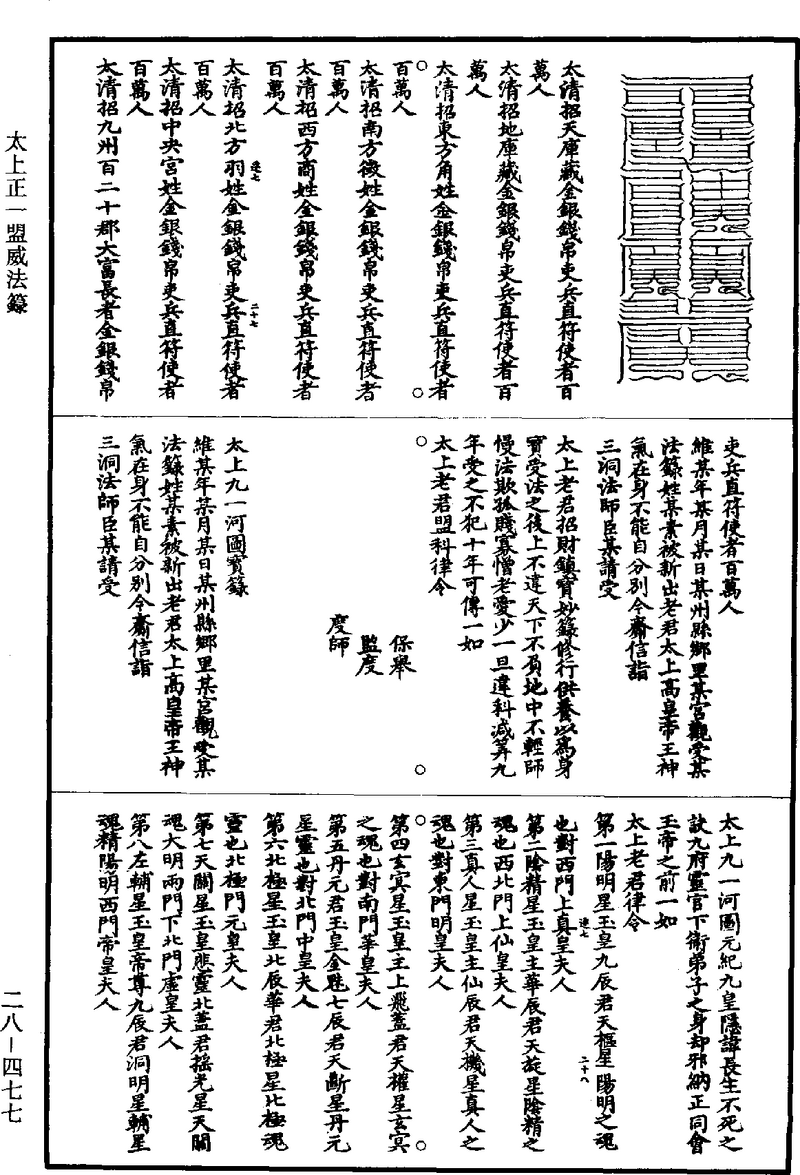 太清招天庫藏金銀錢帛吏兵直符使者百
萬人
太清招地庫藏金銀錢帛吏兵直符使者百
萬人
太清招東方角姓金銀錢帛吏兵直符使者
百萬人
太清招南方徵姓金銀錢帛吏兵直符使者
百萬人
太清招西方商姓金銀錢帛吏兵直符使者
百萬人
太清招北方羽姓金銀錢帛吏兵直符使者
逵七 二十七
百萬人
太清招中央宮姓金銀錢帛吏兵直符使者
百萬人
太清招九州百二十郡大富長者金銀錢帛
吏兵直符使者百萬人
維某年某月某日某州縣鄉里某宮觀受某
法籙姓某素被新出老君太上高皇帝王神
氣在身不能自分別今齋信詣
三洞法師臣某請受
太上老君招財鎮寶妙籙修行供養以為身
寶受法之後上不違天下不負地中不輕師
慢法欺孤賤寡憎老愛少一旦違科減筭九
年受之不犯十年可傳一如
太上老君盟科律令
保舉
監度
度師
太上九一河圖寶籙
維某年某月某日某州縣鄉里某宮觀受某
法籙姓某素被新出老君太上高皇帝王神
氣在身不能自分別今齋信詣
三洞法師臣某請受
太上九一河圖元紀九皇隱諱長生不死之
訣九府靈官下衛弟子之身却邪納正同會
玉帝之前一如
太上老君律令
第一陽明星玉皇九辰君天樞星陽明之魂
也對西門上真皇夫人
逵七 二十八
第二陰精星玉皇主華辰君天旋星陰精之
魂也西北門上仙皇夫人
第三真人星玉皇主仙辰君天機星真人之
魂也對東門明皇夫人
第四玄冥星玉皇主上飛蓋君天權星玄冥
之魂也對南門華皇夫人
第五丹元君玉皇金魁七辰君天斷星丹元
星靈也對北門中皇夫人
第六北極星玉皇北辰華君北極星北極魂
靈也北極門元皇夫人
第七天關星玉皇悲靈北蓋君搖光星天關
魂大明兩門下北門虛皇夫人
第八左輔星玉皇帝尊九辰君洞明星輔星
魂精陽明西門帝皇夫人
太上正一盟威法籙
二八－四七七